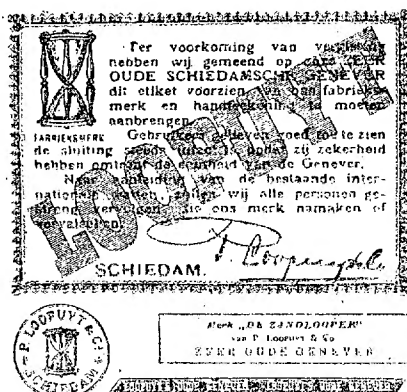 Ter voorkoming van
hebben wij gemeend op onze ZEER
OUDE SCHIEDAMSCHE GENEVER
dit etiket voorzien van ons fabrieks-
merk en handteekening te moeten
aanbrengen.
FABRIEKSMERK
Gebruikers gelieven goed toe te zien
de sluiting steeds intact is opdat zij zekerheid
hebben omtrent de echtheid van de Genever.
Naar aanleiding van de bestaande inter-
nationale wetten, zullen wij alle personen ge-
streng vervolgen, die ons merk namaken of
vervalschen.
LOOPUYT
P. Loopuyt & Co.
SCHIEDAM.
P. LOOPUYT & Co.
SCHIEDAM
Merk „DE ZANDLOOPER"
van P. Loopuyt & Co
ZEER OUDE GENEVER